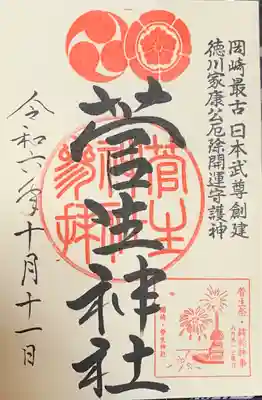 岡崎最古 日本武尊創建
徳川家康公厄除開運守護神
菅生神社
参拝
菅生
令和六年十月十一日
菅生祭・鉾船神事
岡崎・菅生神社